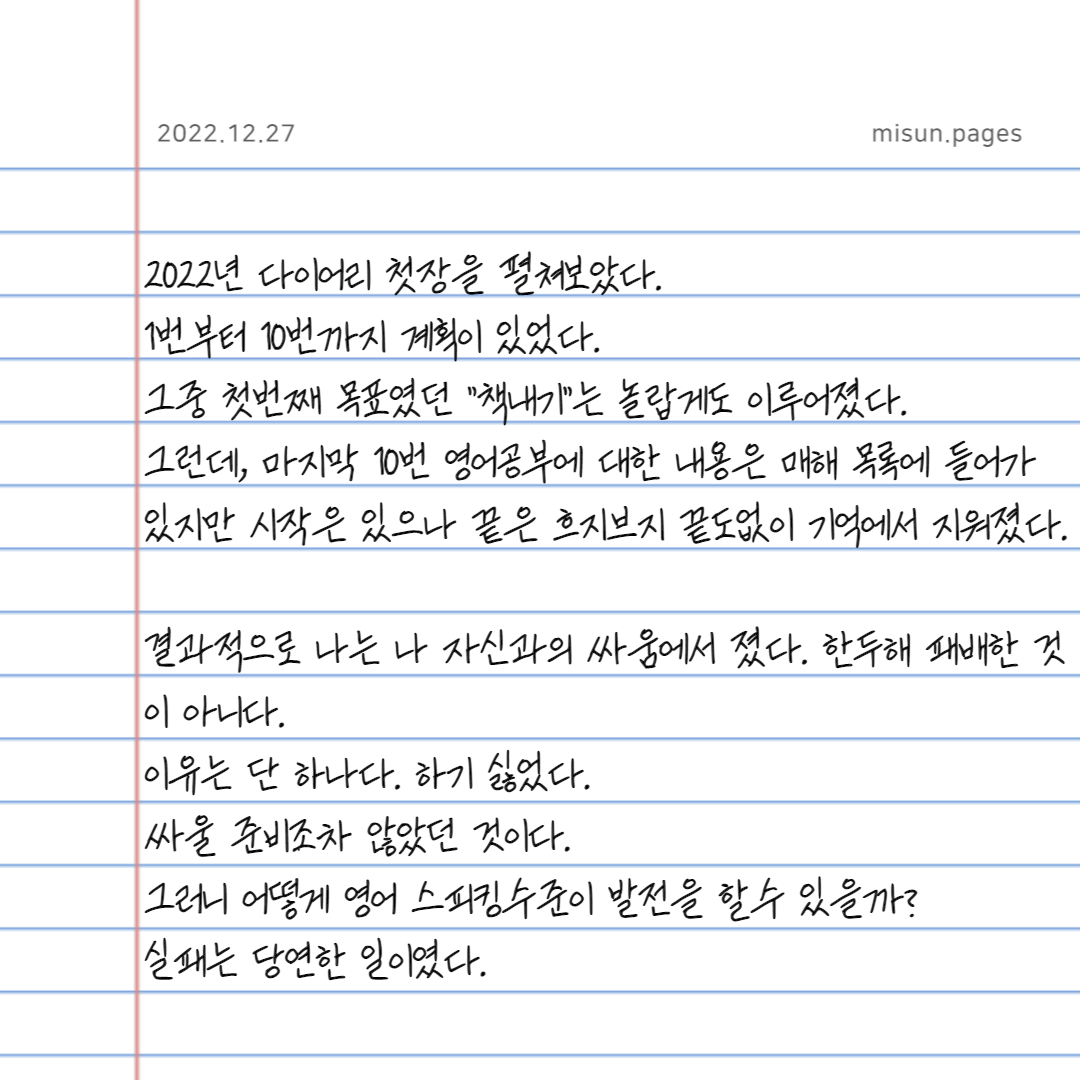 2022.12.27 misun.pages
2022년 다이어리 첫장을 펼쳐보았다.
1번부터 10번까지 계획이 있었다.
그중 첫번째 목표였던 "책내기"는 놀랍게도 이루어졌다.
그런데, 마지막 10번 영어공부에 대한 내용은 매해 목록에 들어가
있지만 시작은 있으나 끝은 흐지브지 끝도없이 기억에서 지워졌다.
결과적으로 나는 나 자신과의 싸움에서 졌다. 한두해 패배한 것
이 아니다.
이유는 단 하나다. 하기 싫었다.
싸울 준비조차 않았던 것이다.
그러니 어떻게 영어 스피킹수준이 발전을 할수 있을까?
실패는 당연한 일이였다.